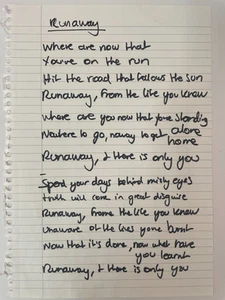 Runaway
Where are now that
You're on the run
Hit the road that follows the sun
Runaway, from the life you know
where are you now that your standing alone
Nowhere to go, noway to get home
Runaway, & there is only you
Spend your days behind misty eyes
truth will come in great disguise
Runaway, from the life you know
unaware of the lives you've burst
Now that it's done, now what have you learnt
Runaway, & there is only you